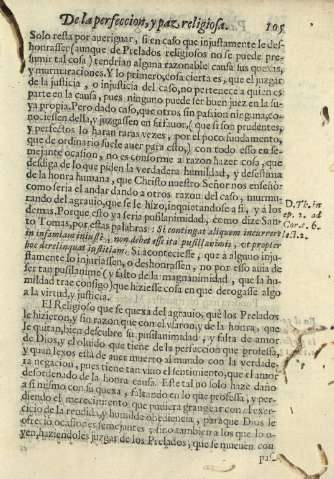 De la perfeccion, y paz religiosa. 105
Solo resta por aueriguar, si en caso que injustamente le des-
honrassen (aunque de Prelados religiosos no se puede pre-
sumir tal cosa) tendrian alguna razonable causa sus quexas,
y murmuraciones. Y lo primero, cosa cierta es, que el juzgar
de la justicia, o injusticia del caso, no pertenece a quien es
parte en la causa, pues ninguno puede ser buen juez en la su-
ya propia. Pero dado caso, que otros sin passion ninguna, co-
nociessen della, y juzgassen en su fauor, (que si son prudentes,
y perfectos lo haran raras vezes, por el poco fundamento,
que de ordinario suele auer para esto,) con todo esso en se-
mejante ocasion, no es conforme a razon hazer cosa, que
desdiga de lo que piden la verdadera humildad, y desestima
de la honra humana, que Christo nuestro Señor nos enseñò:
como seria el andar dando a otros razon del caso, murmu-
rando del agrauio, que se le hizo, inquietandose a si, y a los
demas. Porque esto ya seria pusilanimidad, como dize San-
to Tomas, por estas palabras: Si contingat aliquem incurrere
in infamiam iniuste, non debet esse ita pusillanimis, ut propter
hoc derelinquat iustitiam. Si aconteciesse, que a alguno inju-
stamente lo injuriassen, o deshonrassen, no por esso auia de
ser tan pusilanime (y falto de la magnanimidad, que la hu-
mildad trae consigo) que hiziesse cosa en que derogasse algo
a la virtud, y justicia.
D. Th. in
ep. 2. ad
Cor. c. 6.
l. 2.
El Religioso que se quexa del agrauio, que los Prelados
le hizieron, y sin razon que con el vsaron, y de la honra, que
le quitan, bien descubre su pusilanimidad, y falta de amor
de Dios, y el oluido que tiene de la perfeccion que professa,
y quan lexos està de auer muerto al mundo con la verdade-
ra negacion, pues tiene tan viuo el sentimiento, que el amor
desordenado de la honra causa. Este tal no solo haze daño
a si mismo con su quexa, faltando en lo que professa, y per-
diendo el merecimiento que pudiera grangear con el exer-
cicio de la rendida, y humilde obediencia, para que Dios le
ofreciò ocasiones semejantes, sino tambien a los que lo o-
yen, haziendoles juzgar de los Prelados, que se mueuen con
pas-